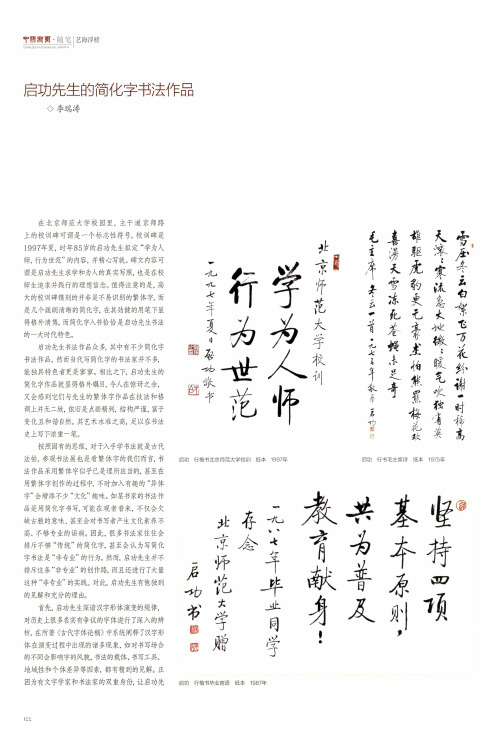 中国书画·随笔|艺海浮桥
启功先生的简化字书法作品
◇ 李瑞涛
在北京师范大学校园里，主干道京师路
上的校训碑可谓是一个标志性符号。校训碑是
1997年夏，时年85岁的启功先生拟定“学为人
师，行为世范”的内容，并精心写就。碑文内容可
谓是启功先生求学和为人的真实写照，也是在校
师生追求并践行的理想信念。值得注意的是，高
大的校训碑镌刻的并非是不易识别的繁体字，而
是几个疏朗清晰的简化字，在其劲健的用笔下显
得格外清隽。而简化字入书恰恰是启功先生书法
的一大时代特色。
启功先生书法作品众多，其中有不少简化字
书法作品。然而当代写简化字的书法家并不多，
能独具特色者更是寥寥。相比之下，启功先生的
简化字作品就显得格外瞩目，令人在惊讶之余，
又会感到它们与先生的繁体字作品在技法和格
调上并无二致，依旧是点画精到，结构严谨，富于
变化且和谐自然，其艺术水准之高，足以在书法
史上写下浓重一笔。
按照固有的思维，对于入手学书法就是古代
法帖，参观书法展也是看繁体字的我们而言，书
法作品采用繁体字似乎已是理所应当的，甚至在
用繁体字创作的过程中，不时加入有趣的“异体
字”会增添不少“文化”趣味。如某书家的书法作
品是用简化字书写，可能在观者看来，不仅会欠
缺古雅的意味，甚至会对书写者产生文化素养不
高、不够专业的诟病。因此，很多书法家往往会
排斥不够“传统”的简化字，甚至会认为写简化
字书法是“非专业”的行为。然而，启功先生并不
排斥这条“非专业”的创作路，而且还进行了大量
这种“非专业”的实践。对此，启功先生有他独到
的见解和充分的理由。
首先，启功先生深谙汉字形体演变的规律，
对历史上很多名实有争议的字体进行了深入的辨
析，在所著《古代字体论稿》中系统阐了汉字形
体在演变过程中出现的诸多现象，如对书写场合
的不同会影响字的风貌，书法的载体、书写工具、
地域性和个体差异等因素，都有精到的见解。正
因为有文字学家和书法家的双重身份，让启功先
北京师范大学校训
学为人师
行为世范
一九九七年夏日 启功敬书
启功 行楷书北京师范大学校训 纸本 1997年
雪压冬云白絮飞万花纷谢一时稀高
天滚滚寒流急大地微微暖气吹独有英
雄驱虎豹更无豪杰怕熊罴梅花欢
喜漫天雪冻死苍蝇未足奇
毛主席 冬云一首 一九七五年 启功
启功 行书毛主席诗 纸本 1975年
坚持四项
基本原则，
共为普及
教育献身！
一九八七年毕业同学
存念
北京师范大学赠
启功书
启功 行楷书毕业寄语 纸本 1987年